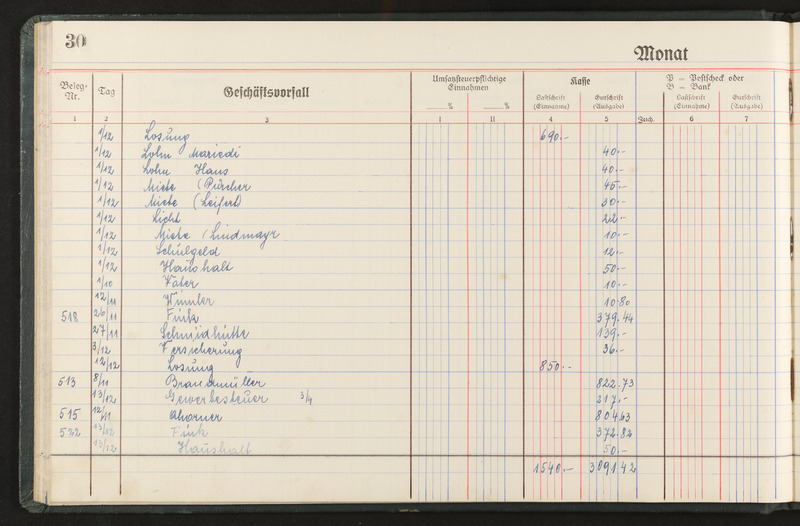 30
Monat
Beleg-Nr. Tag Geschäftsvorfall Umsatzsteuerpflichtige Einnahmen Kasse P = Postscheck oder B = Bank
% % Lastschrift (Einnahme) Gutschrift (Ausgabe) Zeich. Lastschrift (Einnahme) Gutschrift (Ausgabe)
1 2 3 I II 4 5 6 7
1/12 Losung 690.-
1/12 Lohn Mariedi 40.-
1/12 Lohn Haus 40.-
1/12 Miete (Pürcher 45.-
1/12 Miete (Leifert) 30.-
1/12 Licht 22.-
1/12 Miete (Lindmayr 10.-
1/12 Schulgeld 12.-
1/12 Haushalt 50.-
1/10 Vater 10.-
12/11 Winnler 10.80
518 26/11 Fink 379.44
27/11 Schmidhütte 139.-
3/12 Versicherung 36.-
12/12 Losung 850.-
513 8/11 Brandmüller 822.73
13/12 Gewerbesteuer 3/4 217.-
515 12/11 Ahorner 804.63
522 13/12 Fink 372.82
13/12 Haushalt 50.-
1540.- 3091.42